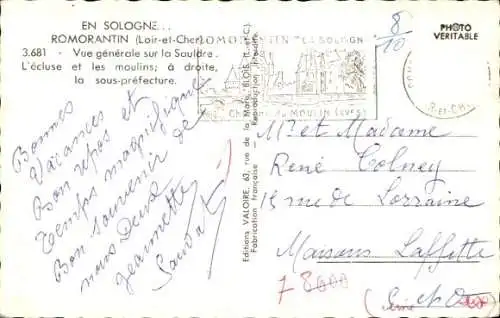 EN SOLOGNE...
ROMORANTIN (Loir-et-Cher)
3.681 - Vue générale sur la Sauldre.
L'écluse et les moulins; à droite,
la sous-préfecture.
ROMORANTIN LA SOLOGNE
MOULIN
8/10
PHOTO
VERITABLE
Bonnes
Vacances et
Bon repos et
Temps magnifique
Bon souvenir de
nous Deux
Jeannette
Editions VALOIRE, 63, rue de la Marne, BLOIS (L.-et-C.)
Fabrication française - Reproduction interdite.
Mr et Madame
René Colney
15 rue de Lorraine
Maisons Laffitte
78600
(Seine et Oise)